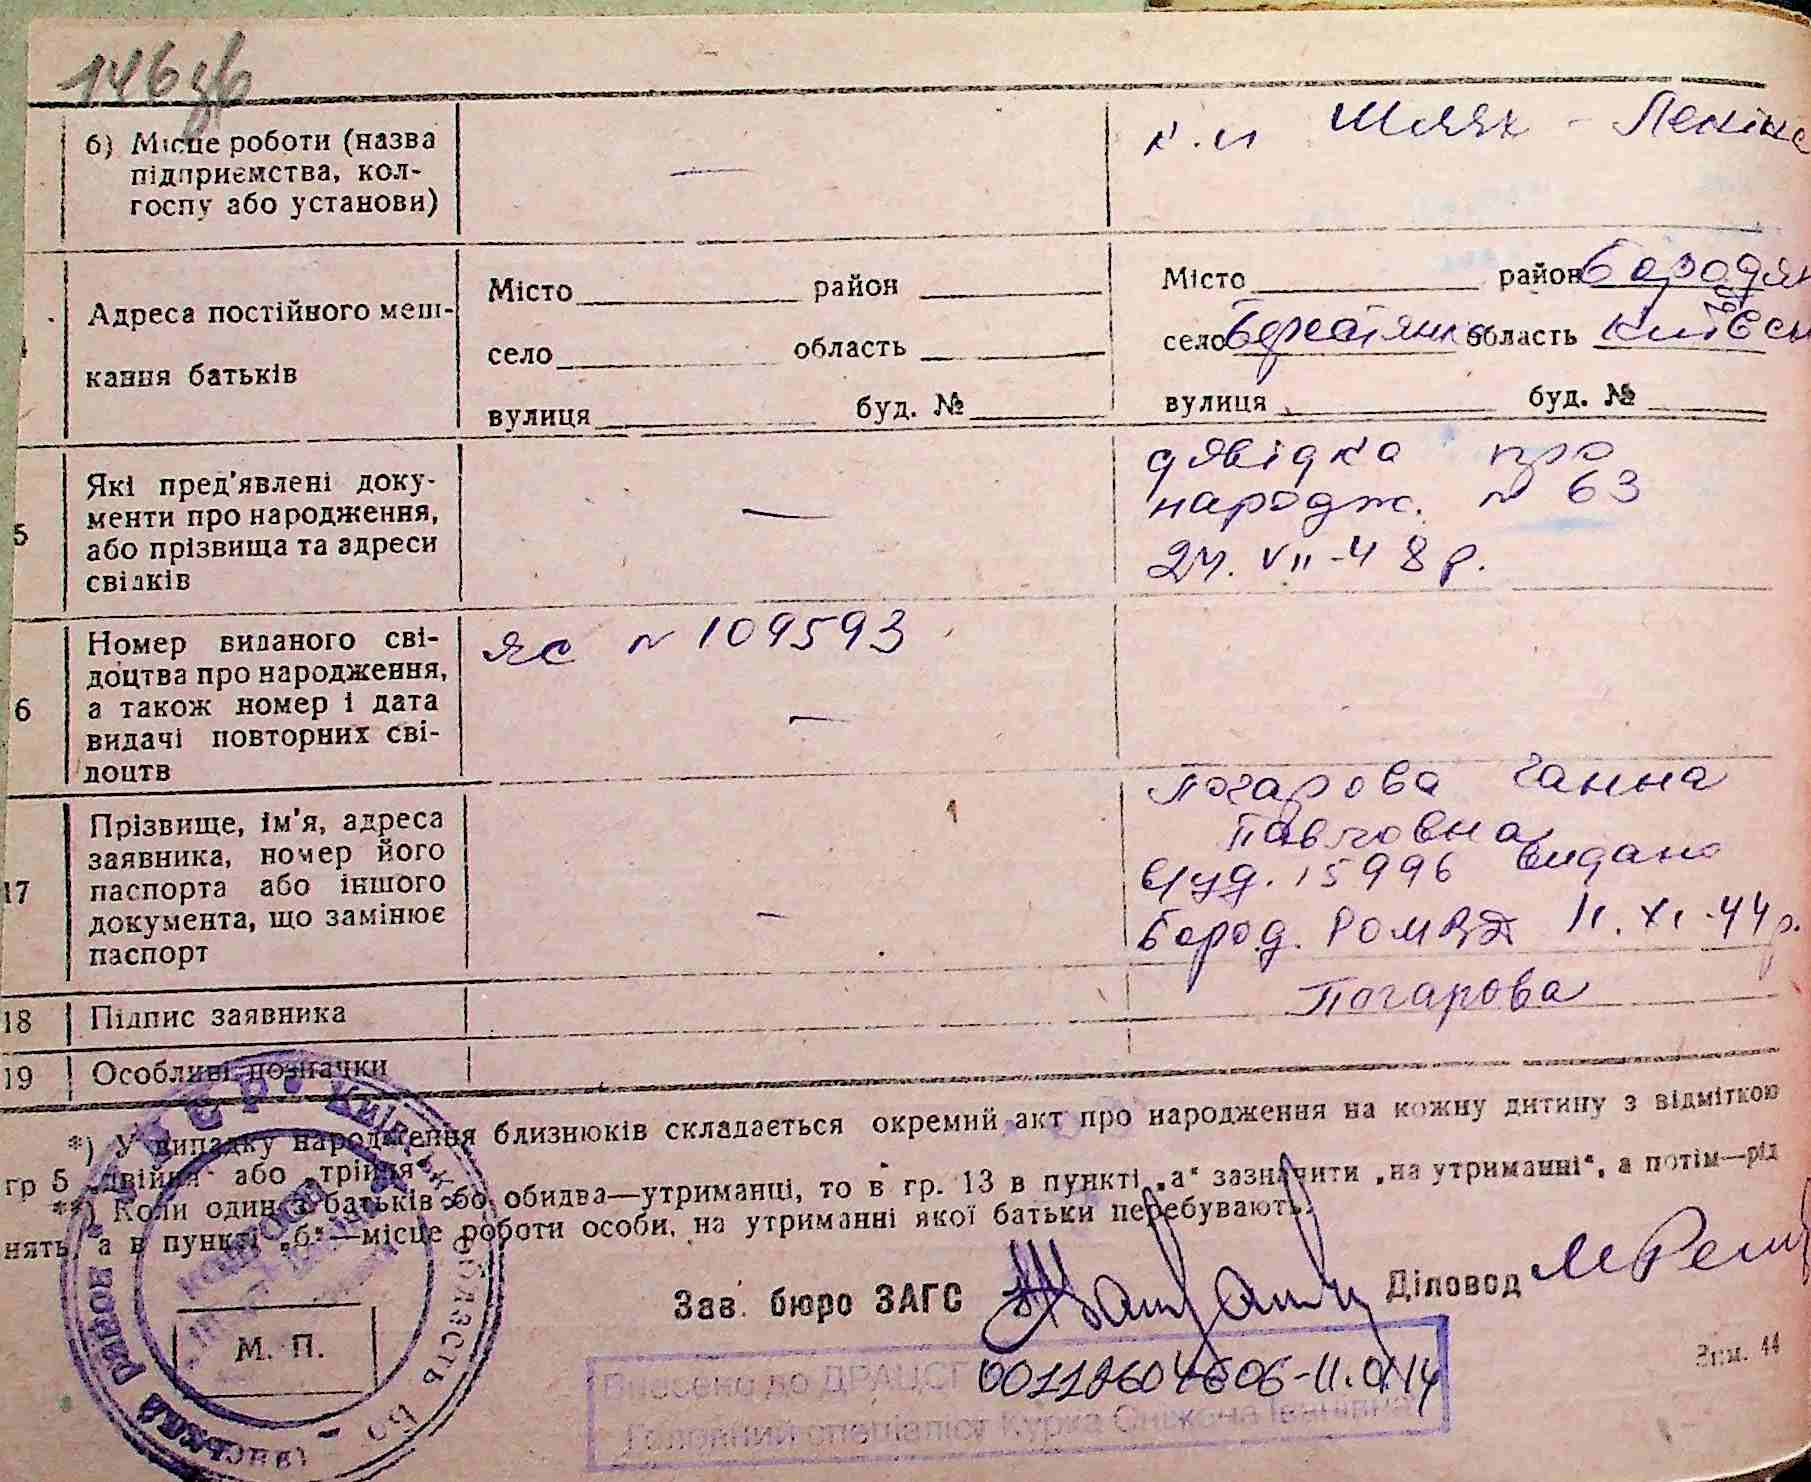 146зв
б) Місце роботи (назва
підприємства, кол-
госпу або установи)
—
к.и Шлях - Леніна
Адреса постійного меш-
кання батьків
Місто район
село область
вулиця буд. №
Місто район Бородян
село область Київськ
вулиця буд. №
5
Які пред'явлені доку-
менти про народження,
або прізвища та адреси
свідків
—
дявідка про
народж. № 63
24. VII-48р.
6
Номер виданого сві-
доцтва про народження,
а також номер і дата
видачі повторних сві-
доцтв
яс № 109593
—
17
Прізвище, ім'я, адреса
заявника, номер його
паспорта або іншого
документа, що замінює
паспорт
—
Погарова Ганна
Павловна
буд. 15996 видано
Бород. 11. XI-44р.
18
Підпис заявника
Погарова
19
Особливі позначки
*) У випадку народження близнюків складається окремий акт про народження на кожну дитину з відміткою
гр 5 „двійня" або „трійня".
**) Коли один з батьків або обидва—утриманці, то в гр. 13 в пункті „а" зазначити „на утриманні", а потім—рід
нять, а в пункті „б"—місце роботи особи, на утриманні якої батьки перебувають.
Зав. бюро ЗАГС
Діловод
М. П.
Київська область
район
Зам. 44
Внесено до ДРАЦСГ 00112604606-11.04.14
Головний спеціаліст Курка Сніжана Іванівна